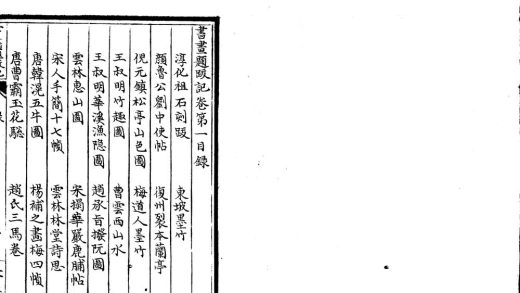 書畫題跋記卷第一目錄
淳化祖石刻跋 東坡墨竹
顏魯公劉中使帖 復州裂本蘭亭
倪元鎮松亭山色圖 梅道人墨竹
王叔明竹趣圖 曹雲西山水
王叔明華溪漁隐圖 趙承旨撥阮圖
雲林惠山圖 宋搨華嚴鹿脯帖
宋人手簡十七幀 雲林林堂詩思
唐韓滉五牛圖 楊補之畫梅四幀
唐曹霸玉花驄 趙氏三馬卷